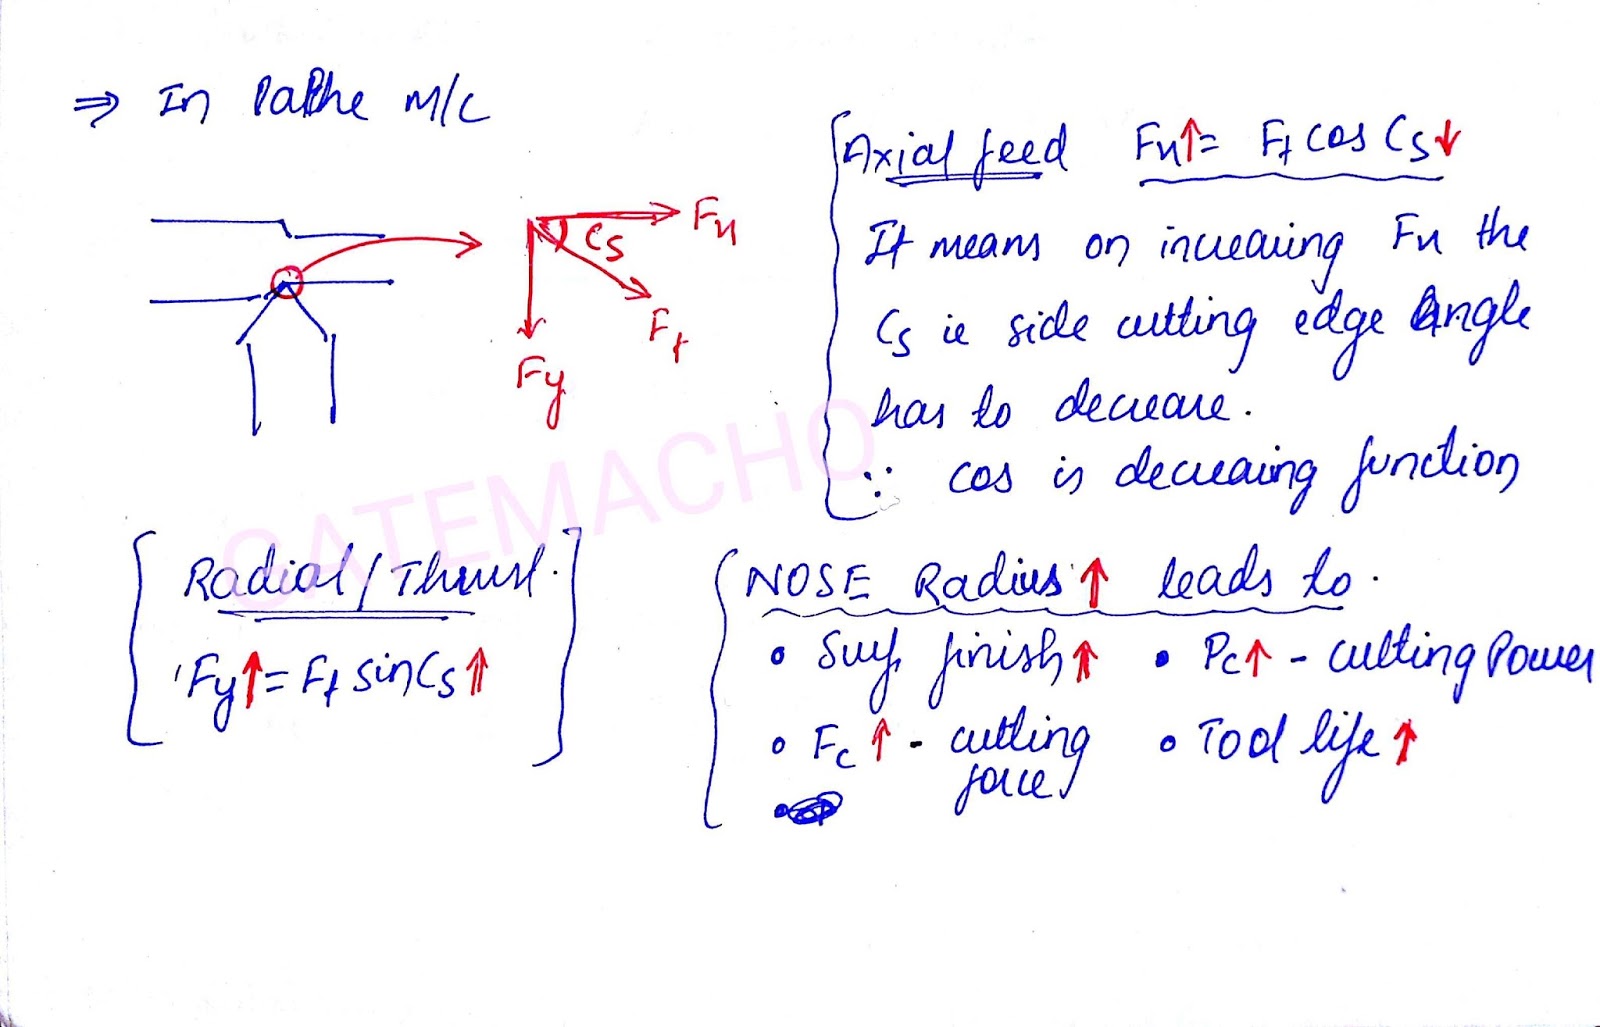 ⇒ In lathe M/C
Fx
Cs
Ft
Fy
Axial feed Fx↑= Ft cos Cs↓
It means on increasing Fx the
Cs ie side cutting edge Angle
has to decrease.
∵ cos is decreasing function
GATEMACHO
Radial/Thrust.
Fy↑= Ft sinCs↑
NOSE Radius↑ leads to.
• Surf. finish↑ • Pc↑ - cutting Power
• Fc↑ - cutting force • Tool life↑